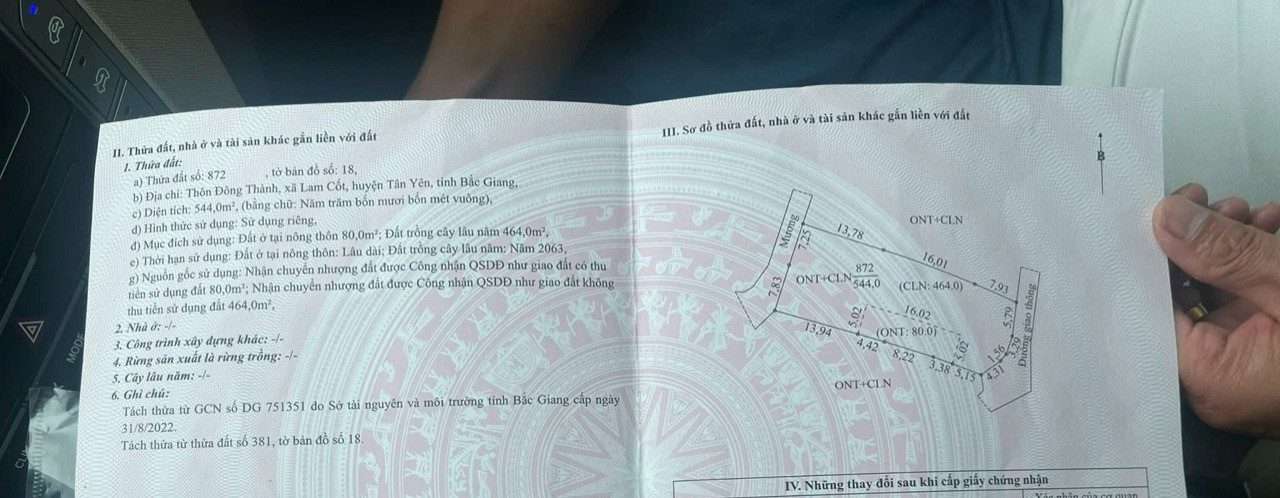 II. Thửa đất, nhà ở và tài sản khác gắn liền với đất
1. Thửa đất:
a) Thửa đất số: 872 , tờ bản đồ số: 18,
b) Địa chỉ: Thôn Đông Thành, xã Lam Cốt, huyện Tân Yên, tỉnh Bắc Giang,
c) Diện tích: 544,0m², (bằng chữ: Năm trăm bốn mươi bốn mét vuông),
d) Hình thức sử dụng: Sử dụng riêng,
đ) Mục đích sử dụng: Đất ở tại nông thôn 80,0m²; Đất trồng cây lâu năm 464,0m²,
e) Thời hạn sử dụng: Đất ở tại nông thôn: Lâu dài; Đất trồng cây lâu năm: Năm 2063,
g) Nguồn gốc sử dụng: Nhận chuyển nhượng đất được Công nhận QSDĐ như giao đất có thu
tiền sử dụng đất 80,0m²; Nhận chuyển nhượng đất được Công nhận QSDĐ như giao đất không
thu tiền sử dụng đất 464,0m²,
2. Nhà ở: -/-
3. Công trình xây dựng khác: -/-
4. Rừng sản xuất là rừng trồng: -/-
5. Cây lâu năm: -/-
6. Ghi chú:
Tách thửa từ GCN số DG 751351 do Sở tài nguyên và môi trường tỉnh Bắc Giang cấp ngày
31/8/2022.
Tách thửa từ thửa đất số 381, tờ bản đồ số 18.
III. Sơ đồ thửa đất, nhà ở và tài sản khác gắn liền với đất
B
ONT+CLN
Mương
7,25
13,78
16,01
7,93
7,83
ONT+CLN 872
544,0
(CLN: 464.0)
5,79
Đường giao thông
16,02
5,02
(ONT: 80.0)
5,02
13,94
4,42
8,22
3,38
5,15
4,31
1,56
3,29
ONT+CLN
IV. Những thay đổi sau khi cấp giấy chứng nhận
Xác nhận của cơ quan
MODE